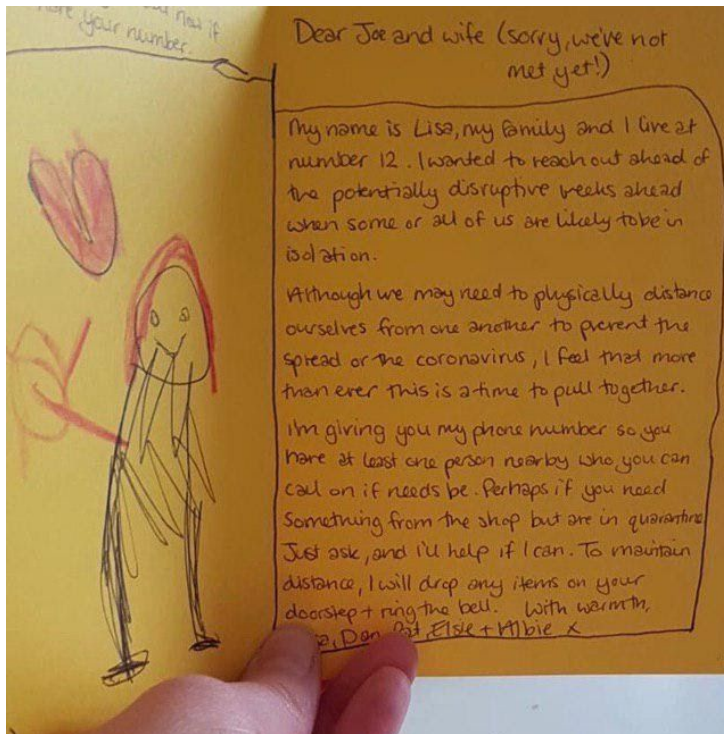 now if
your number.
Dear Joe and wife (sorry, we've not
met yet!)
My name is Lisa, my family and I live at
number 12. I wanted to reach out ahead of
the potentially disruptive weeks ahead
when some or all of us are likely to be in
isolation.
Although we may need to physically distance
ourselves from one another to prevent the
spread or the coronavirus, I feel that more
than ever this is a time to pull together.
I'm giving you my phone number so you
have at least one person nearby who you can
call on if needs be. Perhaps if you need
something from the shop but are in quarantine
Just ask, and i'll help if I can. To maintain
distance, I will drop any items on your
doorstep + ring the bell. With warmth,
Dan, Elsie + Albie x